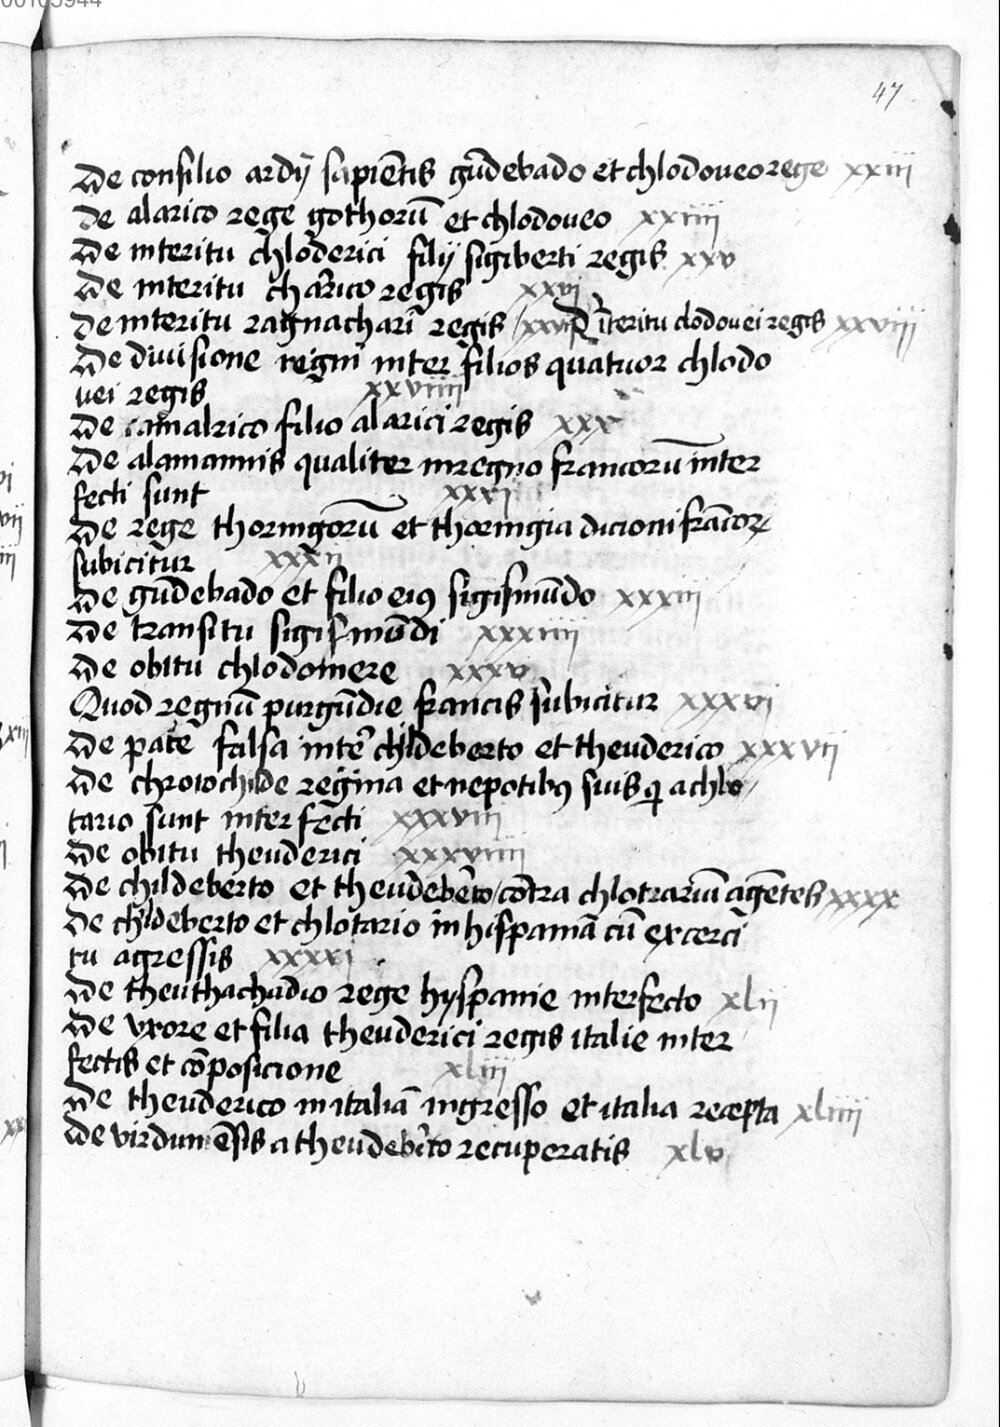 47
De consilio ardij sapiẽtis gũdebado et chlodoueo rege xxiii
De alarico rege gothorũ et chlodoueo xxiiii
De interitu chloderici filij sigiberti regis xxv
De interitu charico regis xxvi
de interitu ragnachari regis xxvii D iteritu clodouei regis xxviii
De diuisione regni inter filios quatuor chlodo
uei regis xxviiii
De amalrico filio alarici regis xxx
De alamannis qualiter in regno francorũ inter
fecti sunt xxxi
De rege thoringorũ et thoringia dicioni frãcorꝝ
subicitur xxxii
De gũdebado et filio eiꝰ sigismũdo xxxiii
De transitu sigismũdi xxxiiii
De obitu chlodomere xxxv
Quod regnũ purgũdie francis subicitur xxxvi
De pace falsa inte᷑ childeberto et theuderico xxxvii
De chrotochilde regina et nepotibꝰ suis q̃ a chlo
tario sunt interfecti xxxviii
De obitu theuderici xxxviiii
De childeberto et theudeb̃to cõtra chlotrariũ agẽtes xxxx
De childeberto et chlotario in hispaniã cũ excerci
tu agressis xxxxi
De theuthachadio rege hyspanie interfecto xlii
De vxore et filia theuderici regis italie inter
fectis et cõposicione xliii
De theuderico in italiã ingresso et italia recepta xliiii
De virdunẽsis a theudeb̃to recuperatis xlv